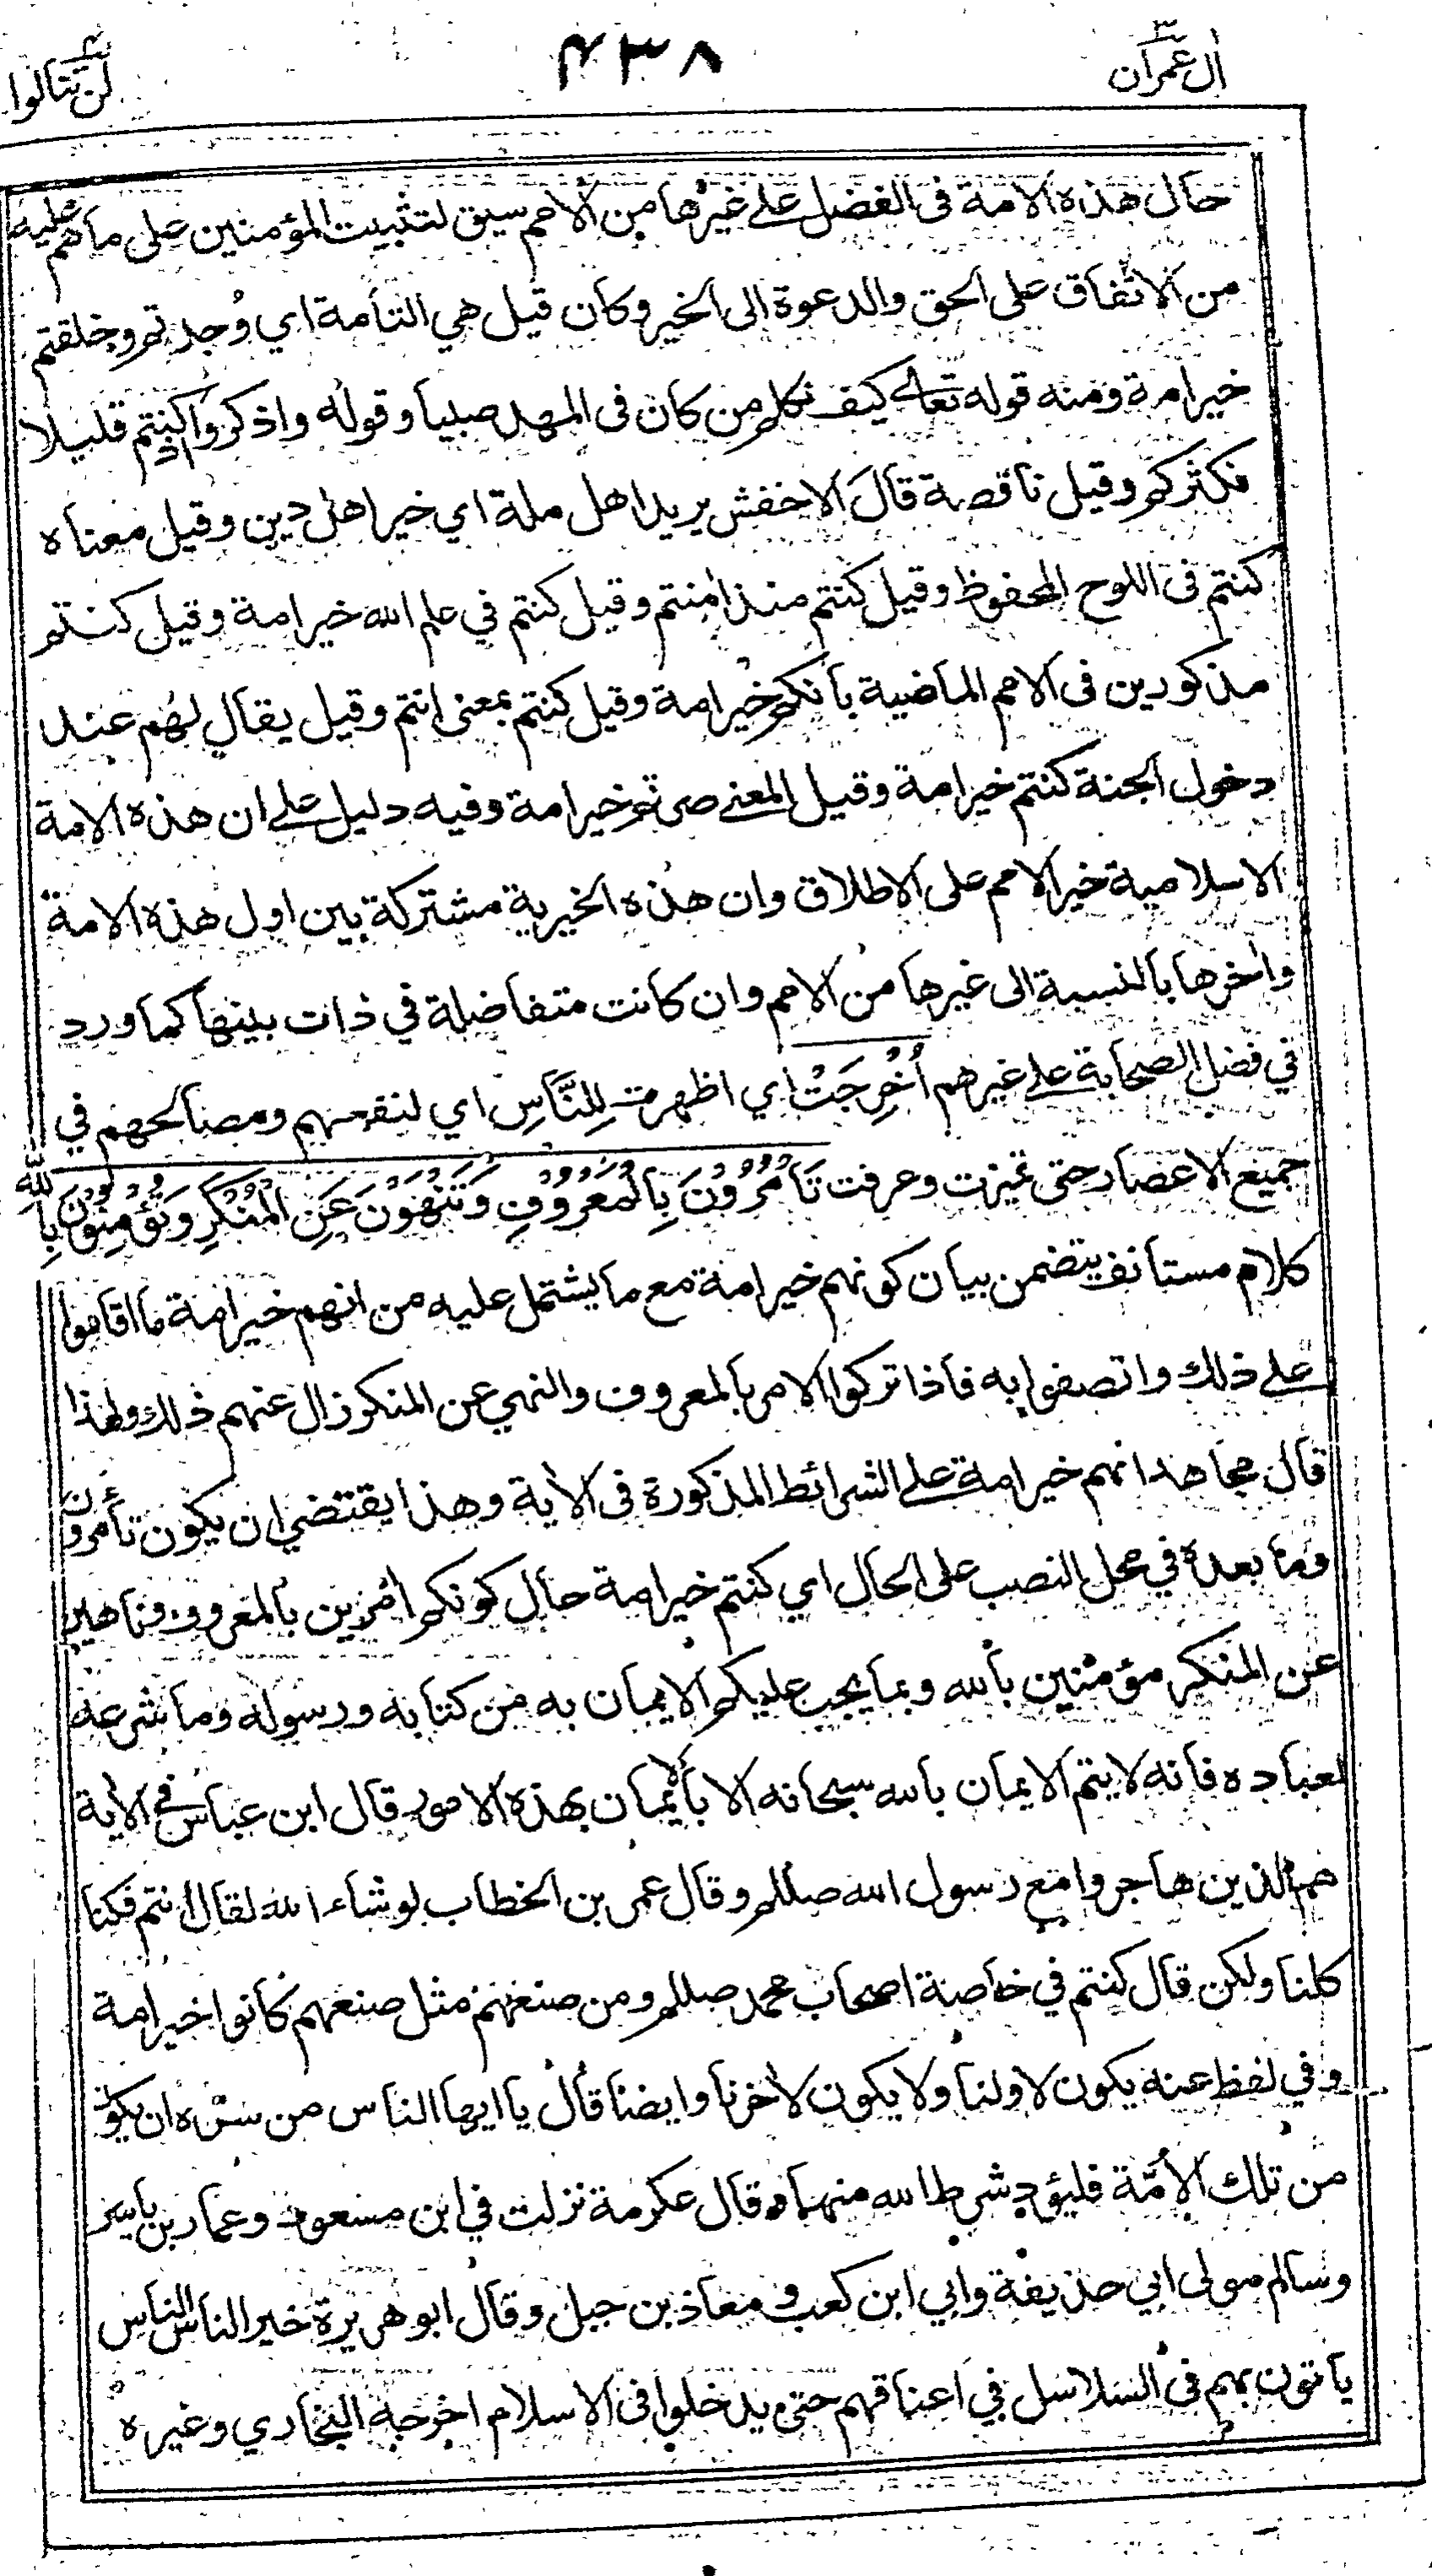 ال عمران ٣
٤٣٨
لن تنالوا ٤
حال هذه الامة فى الفضل على غيرها من الامم سيق لتثبيت المؤمنين على ما هم عليه
من الاتفاق على الحق والدعوة الى الخير وكان قيل هي التامة اي وُجدتم وخلقتم
خير امة ومنه قوله تعالى كيف نكلم من كان فى المهد صبيا وقوله واذكروا اذ كنتم قليلا
فكثركم وقيل ناقصة قال الاخفش يريد اهل ملة اي خير اهل دين وقيل معناه
كنتم فى اللوح المحفوظ وقيل كنتم منذ اٰمنتم وقيل كنتم في علم الله خير امة وقيل كنتم
مذكورين فى الامم الماضية بانكم خير امة وقيل كنتم بمعنى انتم وقيل يقال لهم عند
دخول الجنة كنتم خير امة وقيل المعنے صرتم خير امة وفيه دليل على ان هذه الامة
الاسلامية خير الامم على الاطلاق وان هذه الخيرية مشتركة بين اول هذه الامة
واٰخرها بالنسبة الى غيرها من الامم وان كانت متفاضلة في ذات بينها كما ورد
في فضل الصحابة على غيرهم اُخْرِجَتْ اي اظهرت لِلنَّاسِ اي لنفعهم ومصالحهم في
جميع الاعصار حتى تميزت وعرفت تَأْمُرُوْنَ بِالْمَعْرُوْفِ وَتَنْهَوْنَ عَنِ الْمُنْكَرِ وَتُؤْمِنُوْنَ بِاللّٰهِ
كلام مستانف يتضمن بيان كونهم خير امة مع ما يشتمل عليه من انهم خير امة ما اقاموا
على ذلك واتصفوا به فاذا تركوا الامر بالمعروف والنهي عن المنكر زال عنهم ذلك ولهذا
قال مجاهد انهم خير امة على الشرائط المذكورة فى الاية وهذا يقتضي ان يكون تأمرون
وما بعده في محل النصب على الحال اي كنتم خير امة حال كونكم اٰمرين بالمعروف وناهين
عن المنكر مؤمنين بالله وبما يجب عليكم الايمان به من كتابه ورسوله وما شرعه
لعباده فانه لا يتم الايمان بالله سبحانه الا بالايمان بهذه الامور قال ابن عباس في الاية
هم الذين هاجروا مع رسول الله صللم وقال عمر بن الخطاب لو شاء الله لقال انتم فكنا
كلنا ولكن قال كنتم في خاصة اصحاب محمد صللم ومن صنع مثل صنعهم كانوا خير امة
وفي لفظ عنه يكون لاولنا ولا يكون لاٰخرنا وايضا قال يا ايها الناس من سرّه ان يكون
من تلك الاُمّة فليؤد شرط الله منها قال عكرمة نزلت في ابن مسعود وعمار بن ياسر
وسالم مولى ابي حذيفة وابي ابن كعب ومعاذ بن جبل وقال ابو هريرة خير الناس للناس
ياتون بهم فى السلاسل في اعناقهم حتى يدخلوا فى الاسلام اخرجه البخاري وغيره